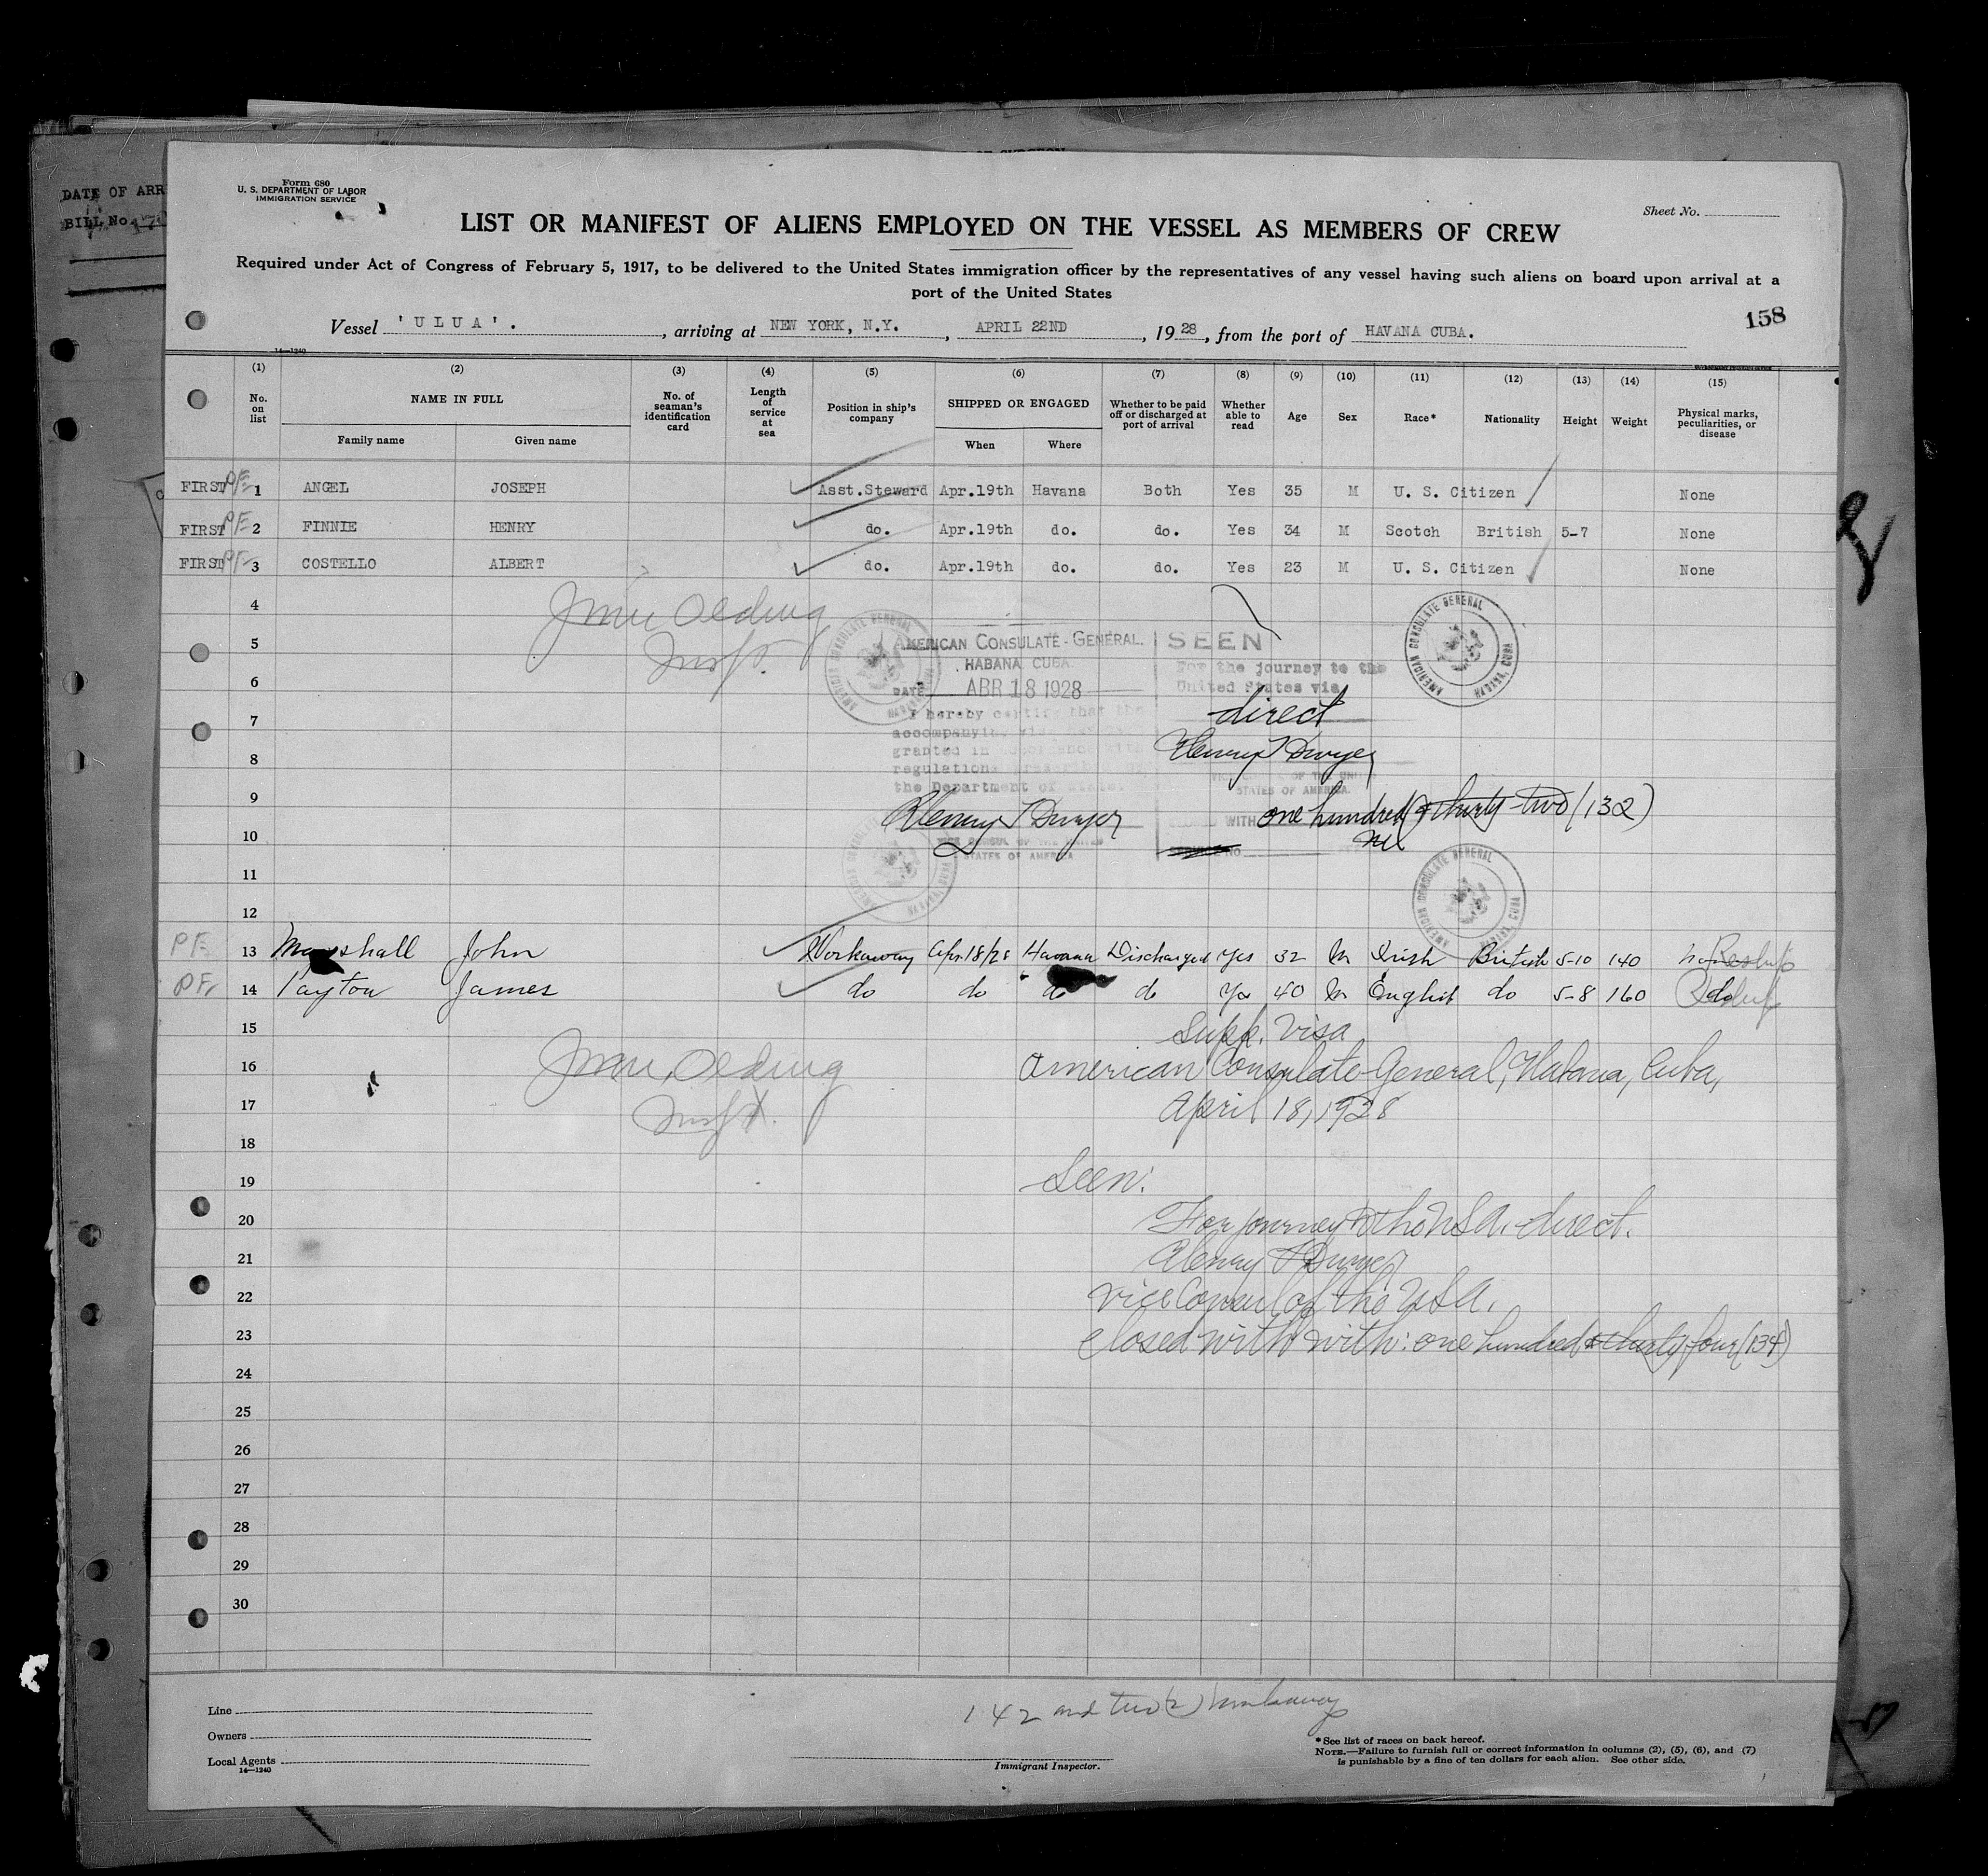 DATE OF ARR
BILL No.
Form 680
U. S. DEPARTMENT OF LABOR
IMMIGRATION SERVICE
Sheet No.
LIST OR MANIFEST OF ALIENS EMPLOYED ON THE VESSEL AS MEMBERS OF CREW
Required under Act of Congress of February 5, 1917, to be delivered to the United States immigration officer by the representatives of any vessel having such aliens on board upon arrival at a
port of the United States
158
Vessel 'ULUA'. , arriving at NEW YORK, N.Y. , APRIL 22ND , 1928, from the port of HAVANA CUBA.
14—1240
(1) (2) (3) (4) (5) (6) (7) (8) (9) (10) (11) (12) (13) (14) (15)
No. on list NAME IN FULL No. of seaman's identification card Length of service at sea Position in ship's company SHIPPED OR ENGAGED Whether to be paid off or discharged at port of arrival Whether able to read Age Sex Race* Nationality Height Weight Physical marks, peculiarities, or disease
Family name Given name When Where
FIRST PF 1 ANGEL JOSEPH Asst.Steward Apr.19th Havana Both Yes 35 M U. S. Citizen None
FIRST PF 2 FINNIE HENRY do. Apr.19th do. do. Yes 34 M Scotch British 5-7 None
FIRST PF 3 COSTELLO ALBERT do. Apr.19th do. do. Yes 23 M U. S. Citizen None
4
5
6
7
8
9
10
11
12
Oeding
Insp.
AMERICAN CONSULATE-GENERAL.
HABANA CUBA.
DATE ABR 18 1928
I hereby certify that the
accompanying
granted in accordance with
regulations
the Department of State.
Henry T Dwyer
VICE CONSUL OF THE UNITED
STATES OF AMERICA
SEEN
For the journey to the
United States via
direct
Henry T Dwyer
OF THE UNITED
STATES OF AMERICA.
WITH one hundred & thirty-two (132)
SERVICE NO.
AMERICAN CONSULATE GENERAL HABANA, CUBA
AMERICAN CONSULATE GENERAL HABANA, CUBA
AMERICAN CONSULATE GENERAL HABANA, CUBA
AMERICAN CONSULATE GENERAL HABANA, CUBA
PF 13 Marshall John Workaway Apr 18/28 Havana Discharged Yes 32 M Irish British 5-10 140
PF 14 Payton James do do do do Yes 40 M English do 5-8 160 do
15
16
17
18
19
20
21
22
23
24
25
26
27
28
29
30
Oeding
Insp.
Supp. Visa
American Consulate-General, Habana, Cuba,
April 18, 1928
Seen:
For journey to the USA. direct.
Henry T Dwyer
Vice Consul of the USA.
Closed with with: one hundred & thirty four (134)
142 and two (2) workaways
Line
Owners
Local Agents
14—1240
Immigrant Inspector.
* See list of races on back hereof.
NOTE.—Failure to furnish full or correct information in columns (2), (5), (6), and (7)
is punishable by a fine of ten dollars for each alien. See other side.